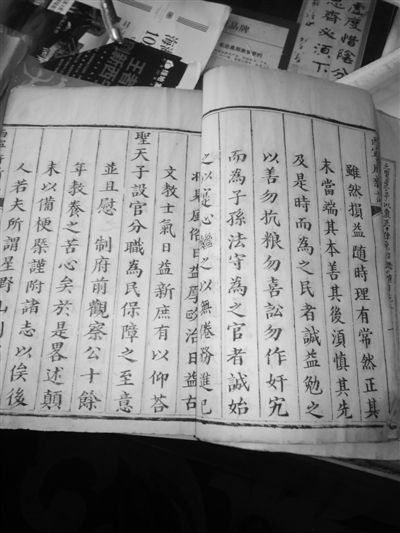 品牌
雖然損益隨時理有常然正其
末當端其本善其後須慎其先
及是時而為之民者誠益勉之
以善勿抗粮勿喜訟勿作奸宄
而為子孫法守為之官者誠始
之以寔心繼之以無倦務進已
日益厚政治日益古
文教士氣日益新庶有以仰荅
聖天子設官分職為民保障之至意
並且慰 制府前觀察公十餘
年教養之苦心矣於是畧述顛
末以備梗槩謹附諸志以俟後
人若夫所謂星野山川